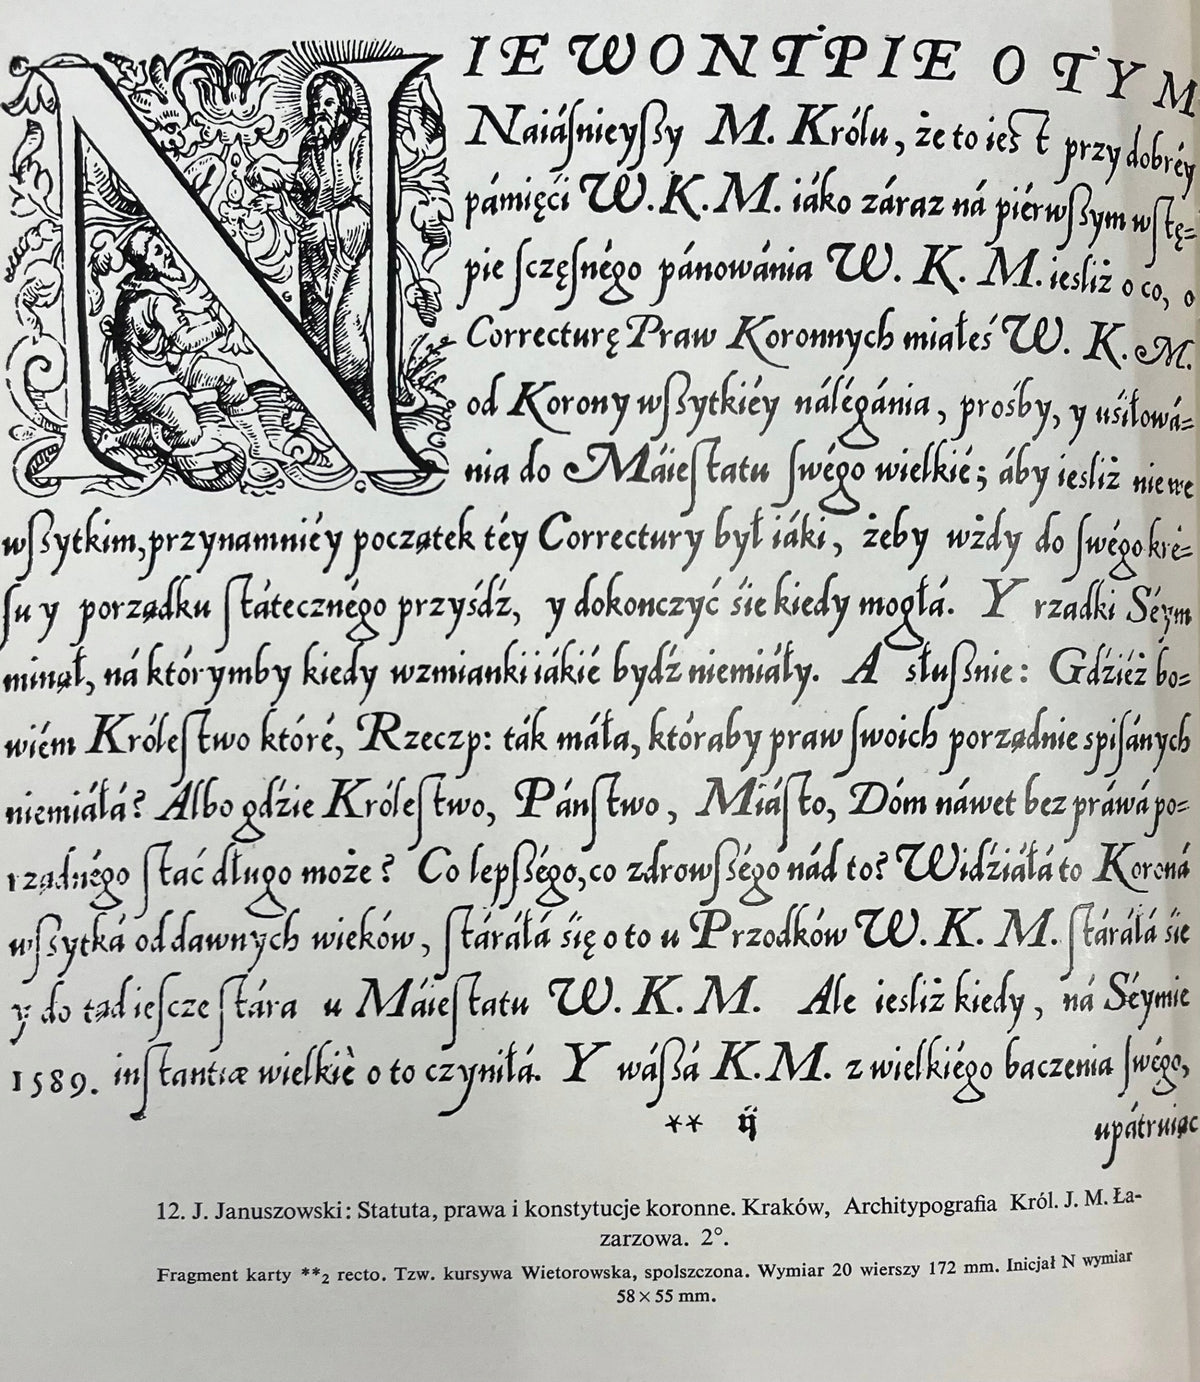 NIE WONTPIE O TYM
Naiáśnieyſßy M. Królu, że to ieſt przy dobréy
pámięći W. K. M. iáko záraz ná piérwſßym wſtę=
pie ſczęſnégo pánowánia W. K. M. iesliż o co, o
Correcturę Praw Koronnych miałeś W. K. M.
od Korony wſßytkiéy nálégánia, prośby, y uśiłowá=
nia do Máieſtatu ſwégo wielkié; áby iesliż nie we
wſßytkim, przynamniéy początek téy Correctury był iáki, żeby wżdy do ſwégo kré=
ſu y porządku ſtátecznégo przyśdź, y dokonczyć śie kiedy mogłá. Y rzadki Séym
minął, ná którymby kiedy wzmianki iákié bydź niemiáły. A słußnie: Gdźiéż bo=
wiém Króleſtwo któré, Rzeczp: ták máła, któraby praw ſwoich porządnie spiſánych
niemiáłá? Albo gdźie Króleſtwo, Pánſtwo, Miáſto, Dóm náwet bez práwá po=
rządnégo ſtać długo może? Co lepſßégo, co zdrowſßégo nád to? Widźiáłá to Koroná
wſßytká od dawnych wieków, ſtáráłá śię o to u Przodków W. K. M. ſtáráłá śie
y do tąd ieſcze ſtára u Máieſtatu W. K. M. Ale iesliż kiedy, ná Séymie
1589. inſtantiæ wielkiè o to czyniłá. Y wáßá K. M. z wielkiégo baczenia ſwégo,
** ij
upátruiąc
12. J. Januszowski: Statuta, prawa i konstytucje koronne. Kraków, Architypografia Król. J. M. Ła-
zarzowa. 2°.
Fragment karty **₂ recto. Tzw. kursywa Wietorowska, spolszczona. Wymiar 20 wierszy 172 mm. Inicjał N wymiar
58 × 55 mm.